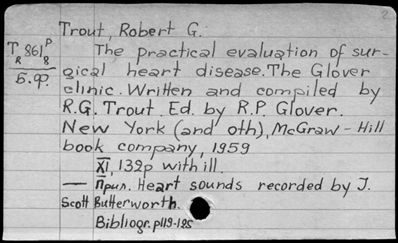 Trout, Robert G.
T 861 P
R 8
Б.ф.
The practical evaluation of sur-
gical heart disease. The Glover
clinic. Written and compiled by
R.G. Trout Ed. by R.P. Glover.
New York (and oth), McGraw-Hill
book company, 1959
XI, 132p with ill.
— Прил. Heart sounds recorded by J.
Scott Butterworth.
Bibliogr. p119-125